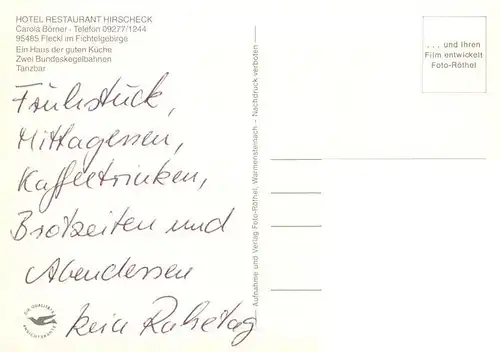 HOTEL RESTAURANT HIRSCHECK
Carola Börner - Telefon 09277/1244
95485 Fleckl im Fichtelgebirge
Ein Haus der guten Küche
Zwei Bundeskegelbahnen
Tanzbar
Frühstück,
Mittagessen,
Kaffeetrinken,
Brotzeiten und
Abendessen
kein Ruhetag
Aufnahme und Verlag Foto-Röthel, Warmensteinach - Nachdruck verboten
... und Ihren
Film entwickelt
Foto-Röthel